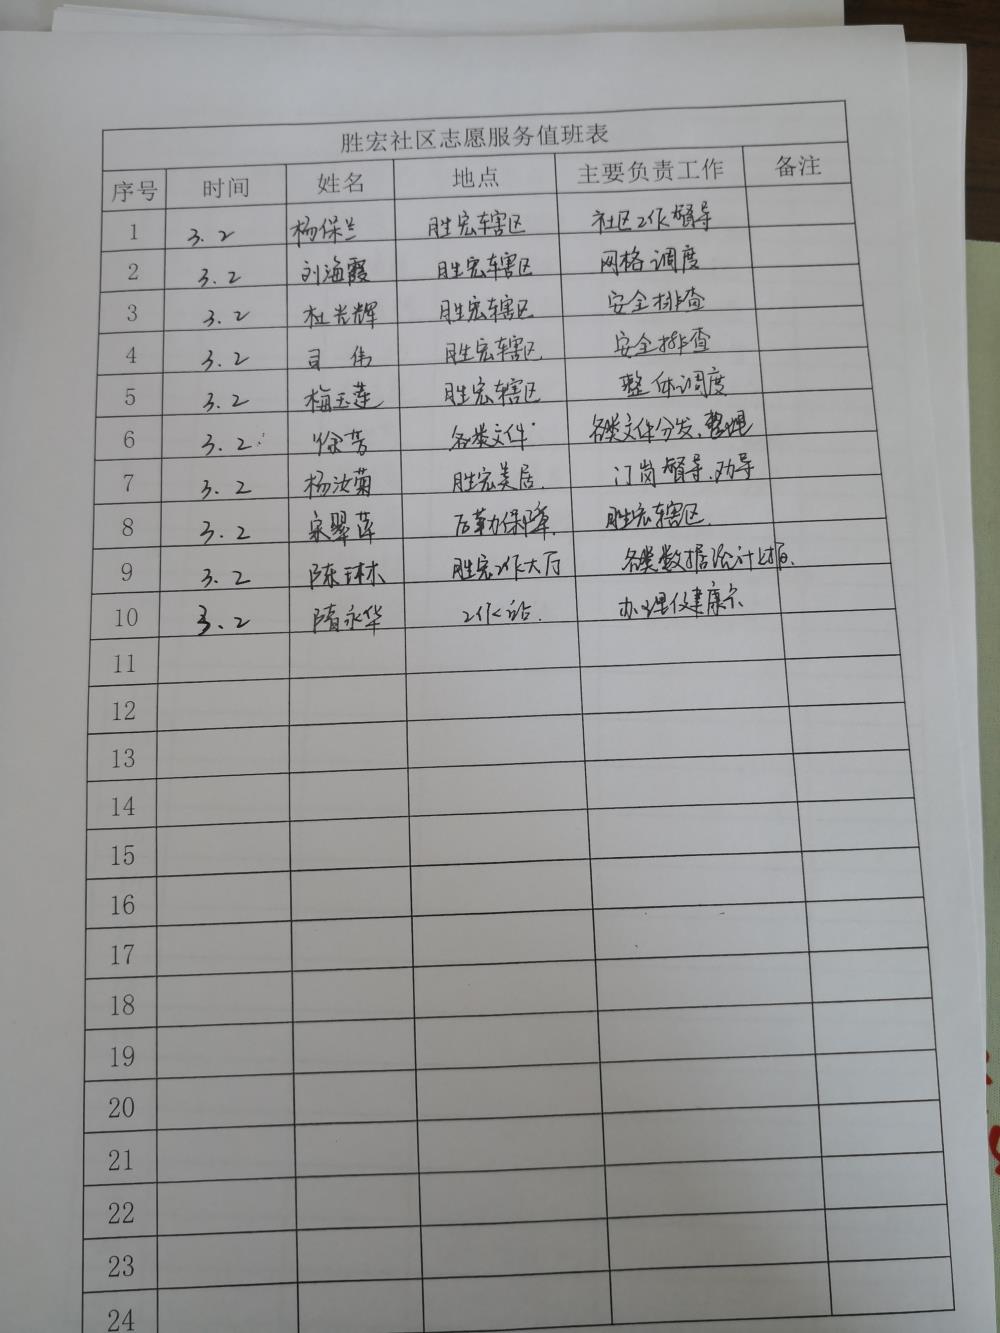 胜宏社区志愿服务值班表
序号 时间 姓名 地点 主要负责工作 备注
1 3.2 杨保兰 胜宏辖区 社区工作督导
2 3.2 刘海霞 胜宏辖区 网格调度
3 3.2 杜光辉 胜宏辖区 安全排查
4 3.2 司伟 胜宏辖区 安全排查
5 3.2 梅玉莲 胜宏辖区 整体调度
6 3.2 徐芳 各类文件 各类文件分发、整理
7 3.2 杨汝菊 胜宏美居. 门岗督导、劝导
8 3.2 宋翠莲 后勤保障. 胜宏辖区.
9 3.2 陈琳 胜宏工作大厅 各类数据统计上报.
10 3.2 隋永华 工作站. 办理健康
11
12
13
14
15
16
17
18
19
20
21
22
23
24